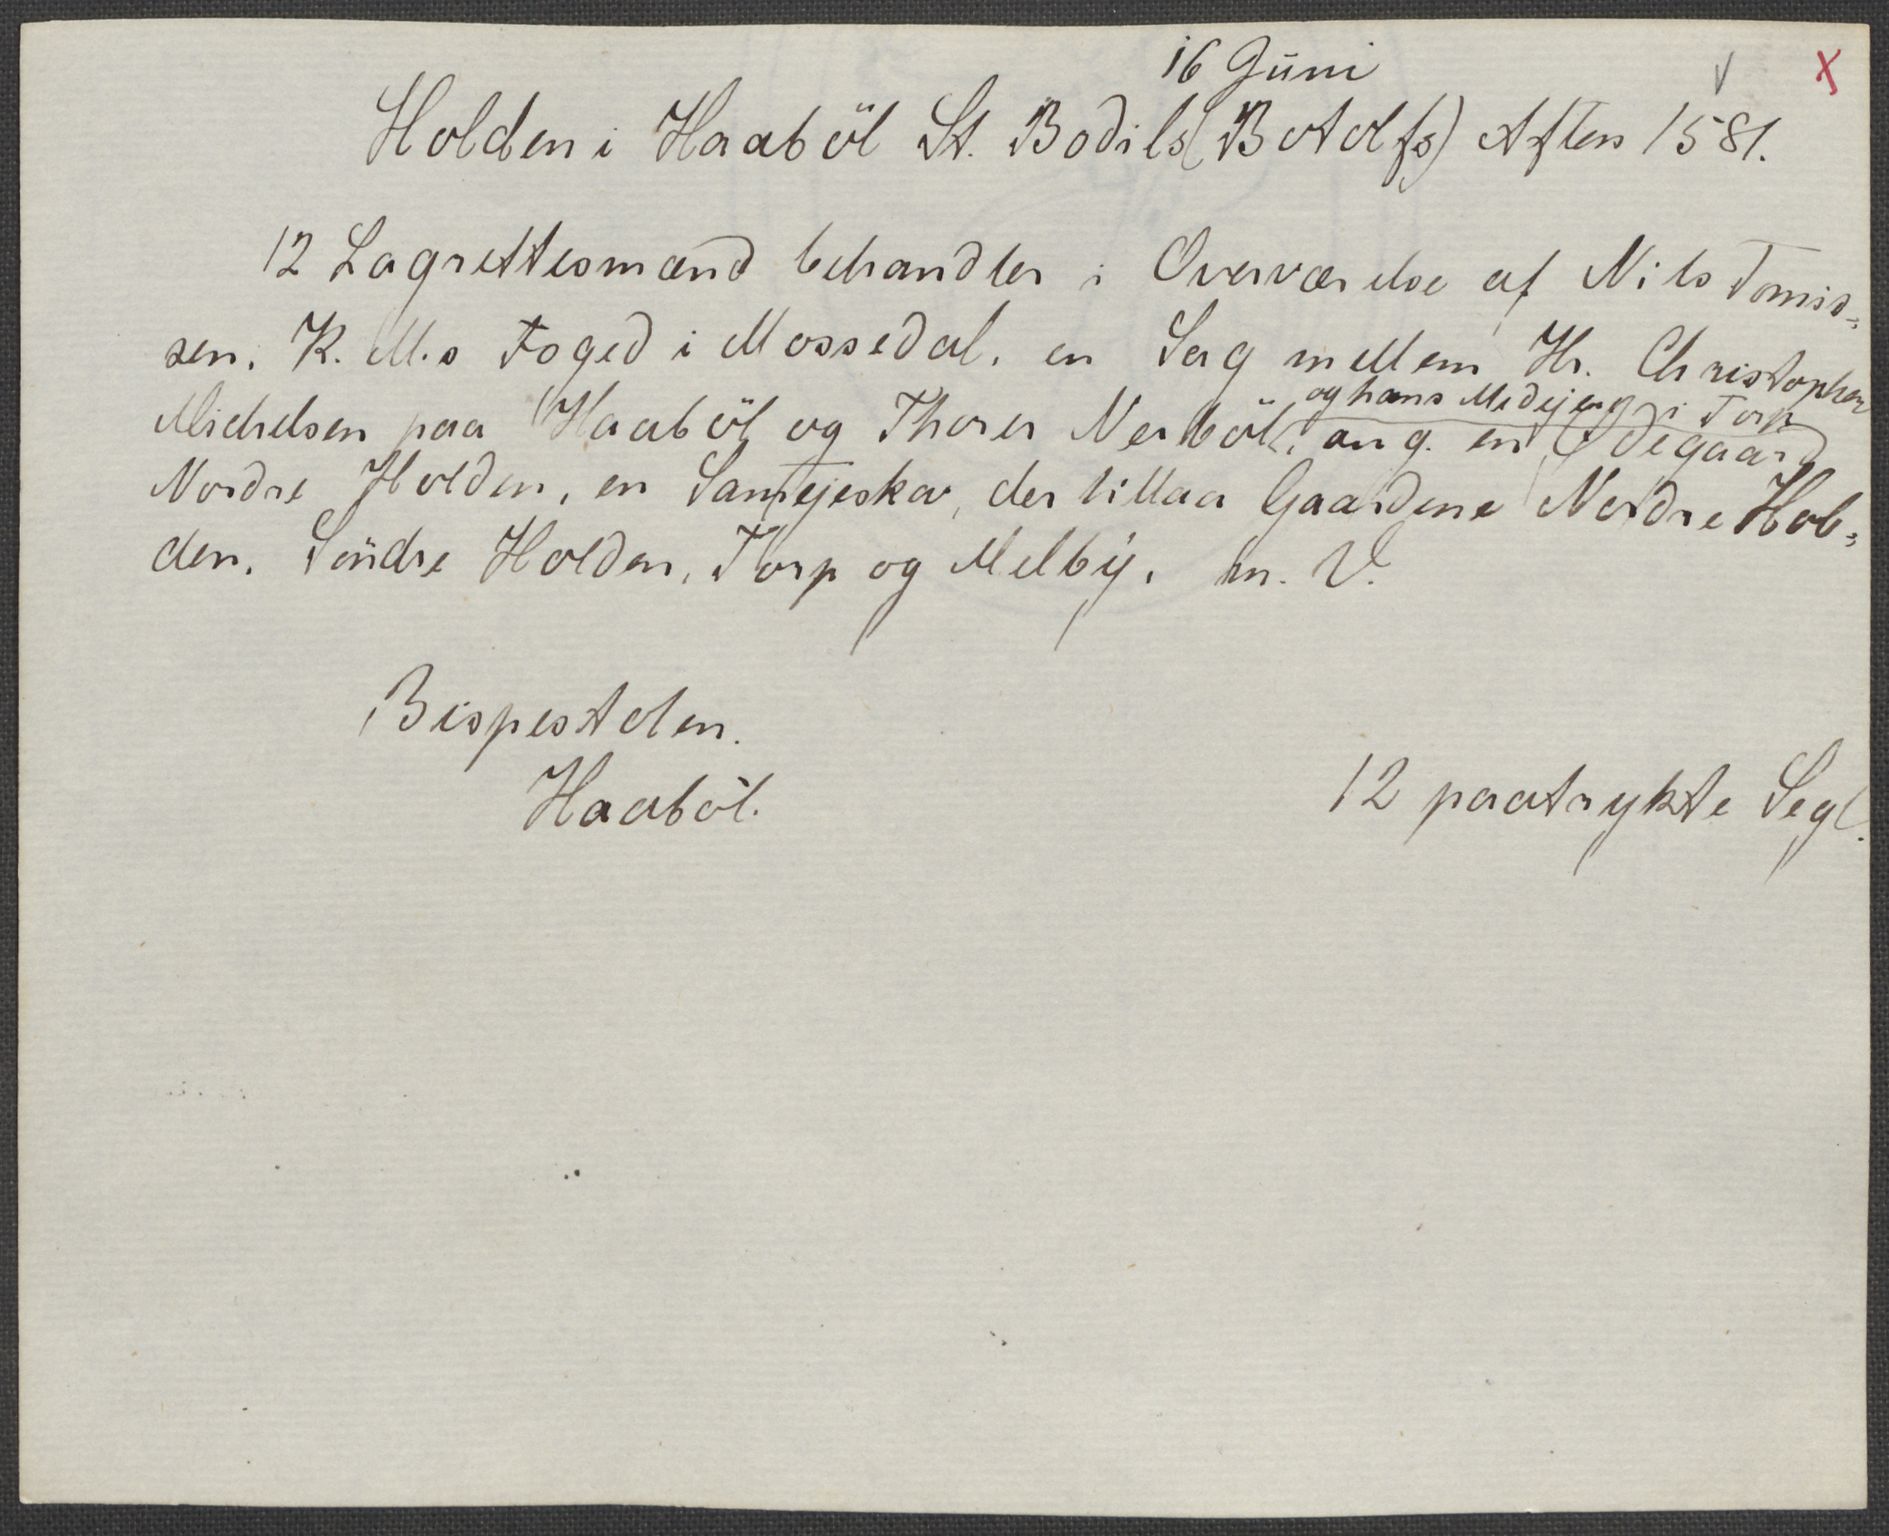 16 Juni
Holden i Haaböl St. Bodils (Botolfs) Aften 1581.
12 Lagrettesmænd behandler i Overværelse af Nils Tomis-
sen, K. M.s Foged i Mossedal, en Sag mellem Hr. Christopher
og hans Medejere i Torp
Michelsen paa Haaböl og Thorer Nerböl, ang. en Ødegaard
Nordre Holden, en Samejeskov, der tillaa Gaardene Nordre Hol-
den, Söndre Holden, Torp og Melby, m. V.
Bispestolen.
Haaböl.
12 paatrykte Segl.